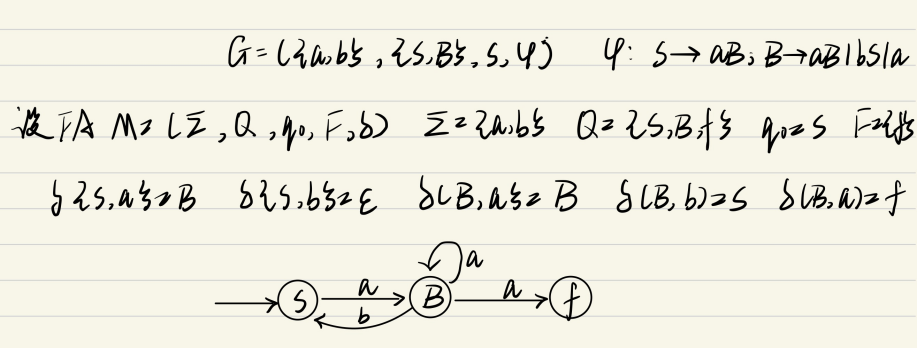 G=({a,b},{S,B},S,φ) φ: S→aB; B→aB|bS|a
设FA M=(Σ,Q,q₀,F,δ) Σ={a,b} Q={S,B,f} q₀=S F={f}
δ{S,a}=B δ{S,b}=ε δ(B,a}=B δ(B,b)=S δ(B,a)=f
a
S a B a f
b